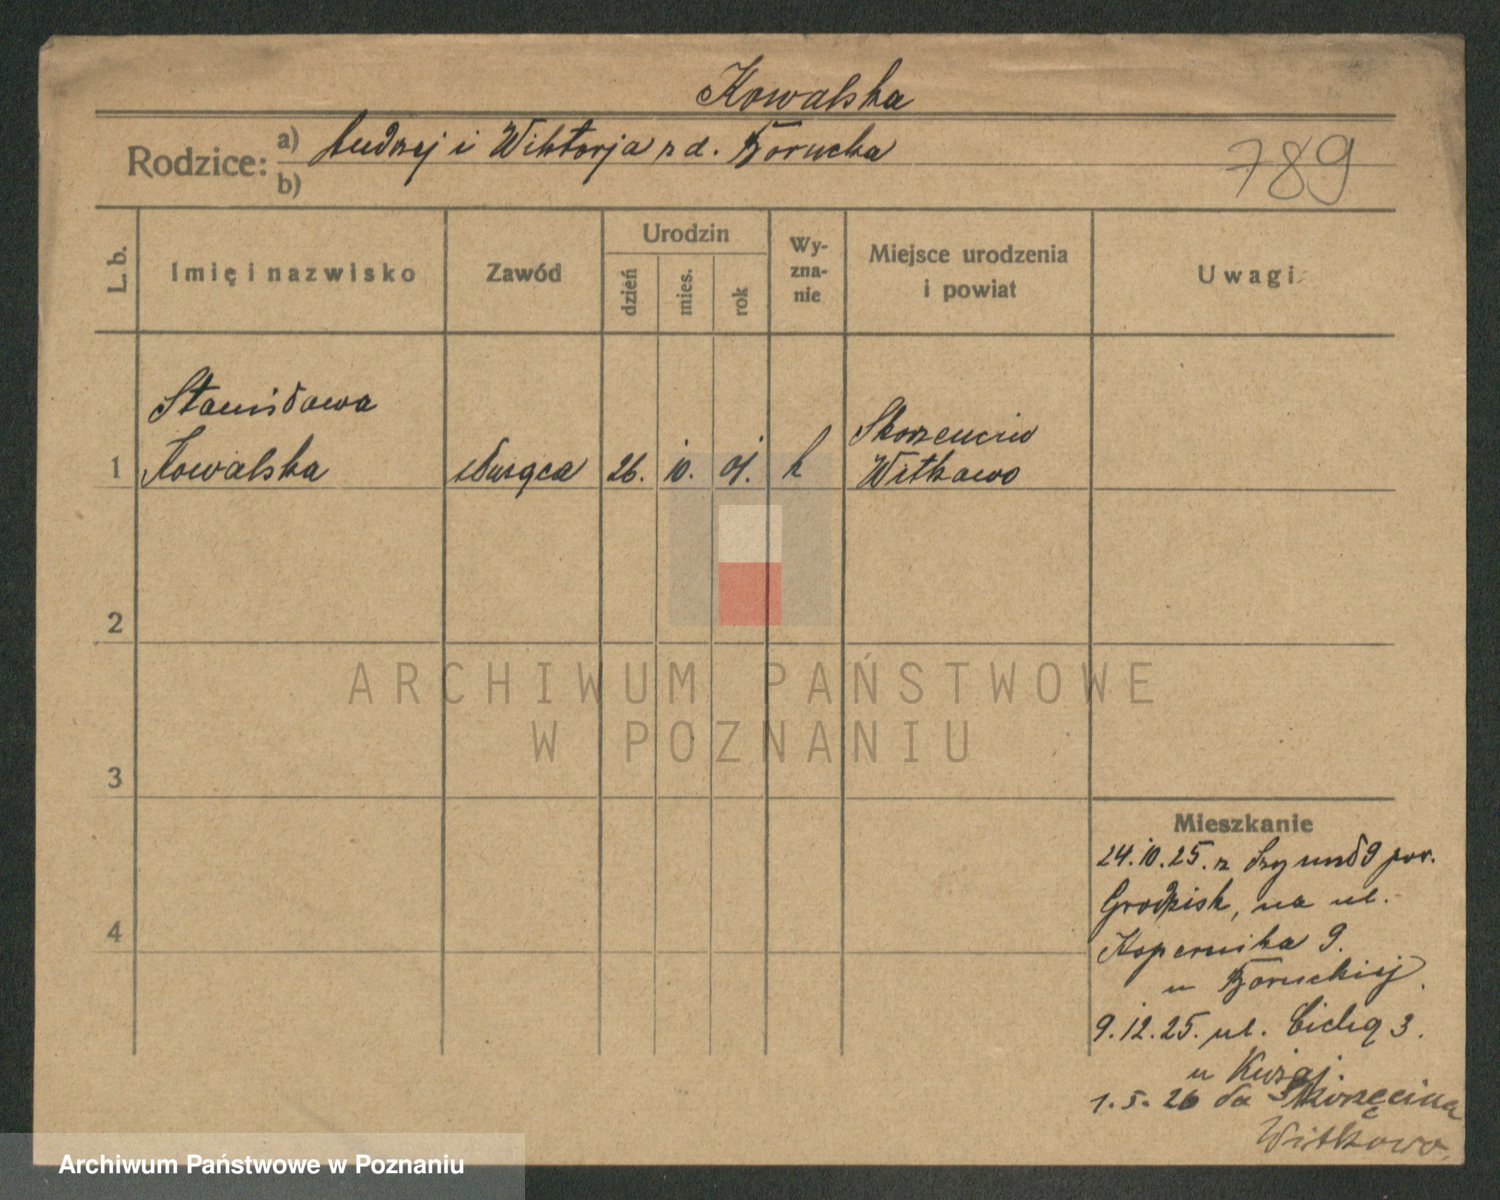 Kowalska
Rodzice: a) Andrzej i Wiktorja z d. Borucka
b)
789
L. b.
Imię i nazwisko
Zawód
Urodzin
dzień
mies.
rok
Wy-
zna-
nie
Miejsce urodzenia
i powiat
Uwagi
Stanisława
1 Kowalska służąca 26. 10. 01. k
Skorzencin
Witkowo
2
3
4
ARCHIWUM PAŃSTWOWE
W POZNANIU
Mieszkanie
24.10.25. z pow.
Grodzisk, na ul.
Kopernika 9.
u Boruckiej.
9.12.25. ul. Cichą 3.
u
1.5.26 do Skorzęcina
Witkowo.
Archiwum Państwowe w Poznaniu